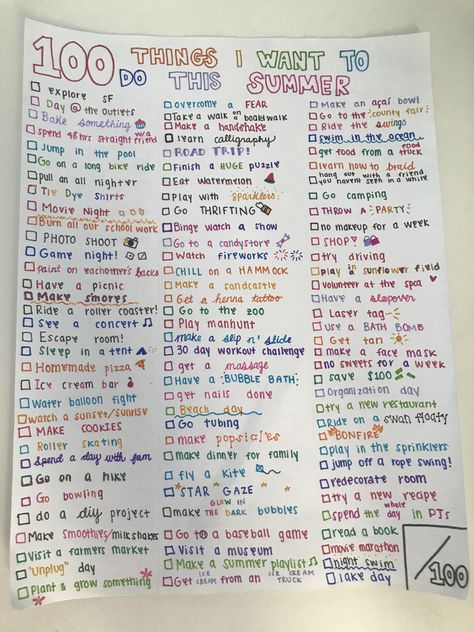 100 THINGS I WANT TO
DO THIS SUMMER
explore SF
Day @ the outlets
Bake something
spend 48 hrs straight with a friend
Jump in the pool
Go on a long bike ride
Pull an all nighter
Tie Dye Shirts
Movie Night
Burn all our school work
PHOTO SHOOT
Game night!
paint on eachother's backs
Have a picnic
Make smores
Ride a roller coaster!
See a concert
Escape room!
Sleep in a tent
Homemade pizza
Ice cream bar
Water balloon fight
watch a sunset/sunrise
MAKE COOKIES
Roller skating
Spend a day with fam
Go on a hike
Go bowling
do a diy project
Make smoothies/milkshakes
Visit a farmers market
"Unplug" day
Plant & grow something
overcome a FEAR
Take a walk on a boardwalk
Make a handshake
learn calligraphy
ROAD TRIP!
Finish a HUGE puzzle
Eat Watermelon
Play with sparklers
Go THRIFTING
Binge watch a show
Go to a candystore
Watch fireworks
CHILL on a HAMMOCK
Make a sandcastle
Get a henna tattoo
Go to the zoo
Play manhunt
make a slip n' slide
30 day workout challenge
get a massage
Have a BUBBLE BATH
get nails done
Beach day
Go tubing
make popsicles
make dinner for family
fly a kite
"STAR" GAZE
make GLOW IN THE DARK bubbles
Go to a baseball game
Visit a museum
Make a Summer playlist
Get ICE CREAM from an ICE CREAM TRUCK
Make an açaí bowl
Go to the county fair
Ride the swings
swim in the ocean
get food from a food TRUCK
learn how to braid
hang out with a friend you havent seen in a while
Go camping
THROW A PARTY
no makeup for a week
SHOP!
try driving
play in sunflower field
volunteer at the spa
Have a sleepover
Laser tag
use a BATH BOMB
Get tan
make a face mask
no sweets for a week
save $100
Organization day
try a new restaurant
Ride on a swan floaty
"BONFIRE"
play in the sprinklers
jump off a rope swing!
redecorate room
try a new recipe
spend the whole day in PJs
read a book
movie marathon
night swim
lake day
/100